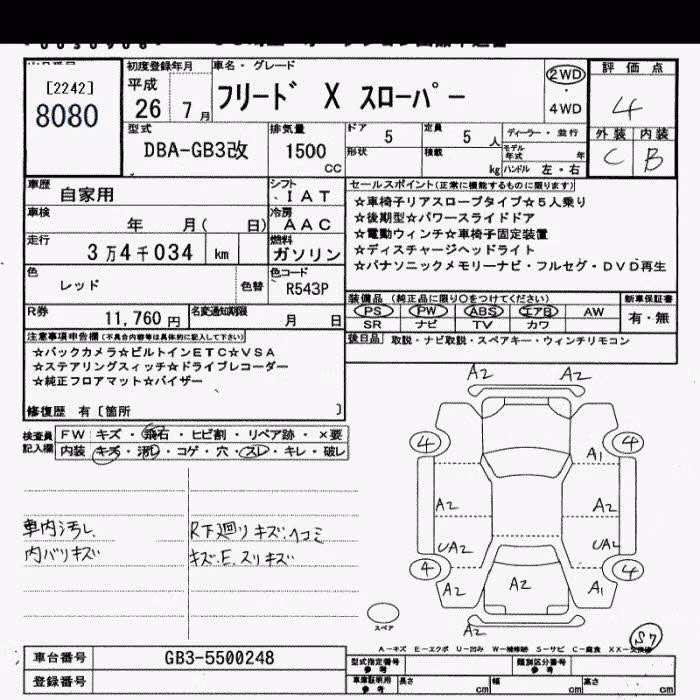 [2242]
8080
初度登録年月
平成
26 7 月
車名・グレード
フリード X スローパー
2WD
・
4WD
評価点
4
外装 内装
C B
型式
DBA-GB3改
排気量
1500
CC
ドア 5
定員 5 人
形状
積載 kg
ディーラー・並行
モデル年式 年
ハンドル 左・右
車歴
自家用
シフト
IAT
車検
年 月( 日)
冷房
AAC
走行
3万4千034 km
燃料
ガソリン
色
レッド
色替
色コード
R543P
R券
11,760円
名変通知期限
月 日
セールスポイント(正常に機能するものに限ります)
☆車椅子リアスロープタイプ☆5人乗り
☆後期型☆パワースライドドア
☆電動ウィンチ☆車椅子固定装置
☆ディスチャージヘッドライト
☆パナソニックメモリーナビ・フルセグ・DVD再生
装備品 (純正品に限り○をつけてください)
新車保証書
PS PW ABS エアB AW
SR ナビ TV カワ
有・無
後日品 取説・ナビ取説・スペアキー・ウィンチリモコン
注意事項申告欄(不具合内容等は具体的に記入して下さい)
☆バックカメラ☆ビルトインETC☆VSA
☆ステアリングスイッチ☆ドライブレコーダー
☆純正フロアマット☆バイザー
修復歴 有〔箇所 〕
検査員記入欄
FW キズ・飛石・ヒビ割・リペア跡・×要
内装 キズ・汚れ・コゲ・穴・スレ・キレ・破レ
車内汚レ.
内バリキズ
R下廻リキズ.ヘコミ
キズ.E.スリキズ
A2 A2
4 4
A1
A2 A2
UA2 UA2
4 4
A2 A2 A1
A2
スペア
S7
A-キズ E-エクボ U-凹み W-補修跡 S-サビ C-腐食 XX-交換済
車台番号 GB3-5500248
登録番号
型式指定番号 参考
類別区分番号 参考
車庫証明用 参考
長さ cm 幅 cm 高さ cm